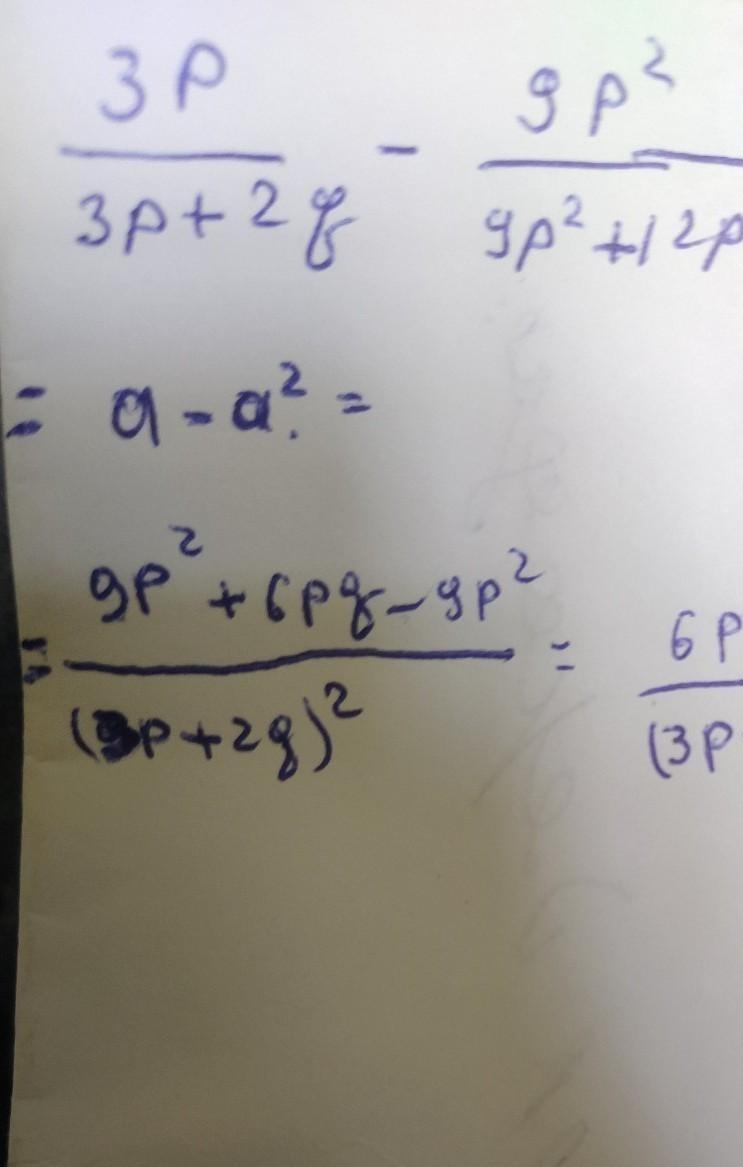 3p/(3p+2q) - 9p²/(9p²+12p
= a - a². =
= (9p²+6pq-9p²)/(3p+2q)² = 6p/(3p